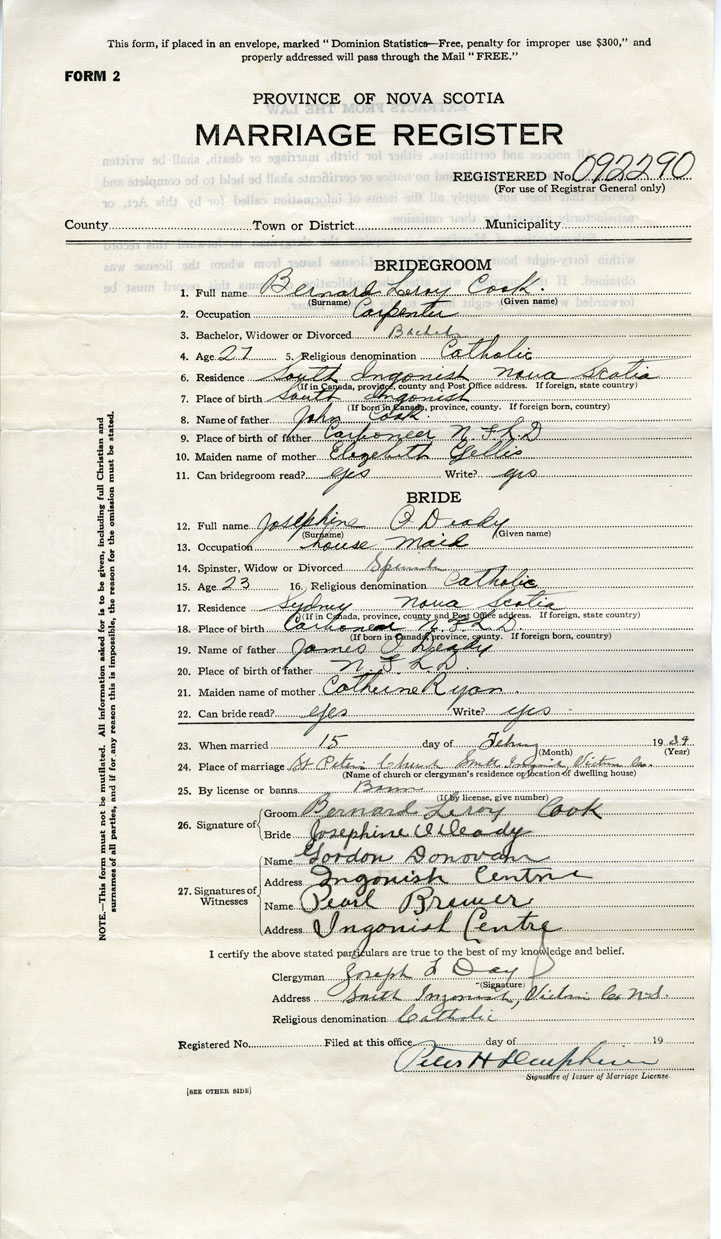 This form, if placed in an envelope, marked “Dominion Statistics—Free, penalty for improper use $300,” and
properly addressed will pass through the Mail “FREE.”
FORM 2
PROVINCE OF NOVA SCOTIA
MARRIAGE REGISTER
REGISTERED No. 092290
(For use of Registrar General only)
County Town or District Municipality
BRIDEGROOM
1. Full name Bernard Leroy Cook.
(Surname) (Given name)
2. Occupation Carpenter
3. Bachelor, Widower or Divorced Bachel
4. Age 27 5. Religious denomination Catholic
6. Residence South Ingonish Nova Scotia
(If in Canada, province, county and Post Office address. If foreign, state country)
7. Place of birth South Ingonish
(If born in Canada, province, county. If foreign born, country)
8. Name of father John Cook
9. Place of birth of father Carboneer N.F.L.D
10. Maiden name of mother Elizabeth Gellis
11. Can bridegroom read? yes Write? yes
BRIDE
12. Full name Josephine O Deady
(Surname) (Given name)
13. Occupation house maid
14. Spinster, Widow or Divorced
15. Age 23 16. Religious denomination Catholic
17. Residence Sydney Nova Scotia
(If in Canada, province, county and Post Office address. If foreign, state country)
18. Place of birth Carbonear N.F.L.D.
(If born in Canada, province, county. If foreign born, country)
19. Name of father James O Deady
20. Place of birth of father N.F.L.D.
21. Maiden name of mother Catherine Ryan.
22. Can bride read? yes Write? yes
23. When married 15 day of Febry 1939
(Month) (Year)
24. Place of marriage St Peters Church South Ingonish, Victoria Co.
(Name of church or clergyman's residence or location of dwelling house)
25. By license or banns Banns
(If by license, give number)
26. Signature of Groom Bernard Leroy Cook
Bride Josephine O'Deady
27. Signatures of Witnesses Name Gordon Donovan
Address Ingonish Centre
Name Pearl Brewer
Address Ingonish Centre
I certify the above stated particulars are true to the best of my knowledge and belief.
Clergyman Joseph L Day
(Signature)
Address South Ingonish, Victoria Co N.S.
Religious denomination Catholic
Registered No. Filed at this office day of 19
Peter H
Signature of Issuer of Marriage License.
[SEE OTHER SIDE]
NOTE.—This form must not be mutilated. All information asked for is to be given, including full Christian and
surnames of all parties, and if for any reason this is impossible, the reason for the omission must be stated.